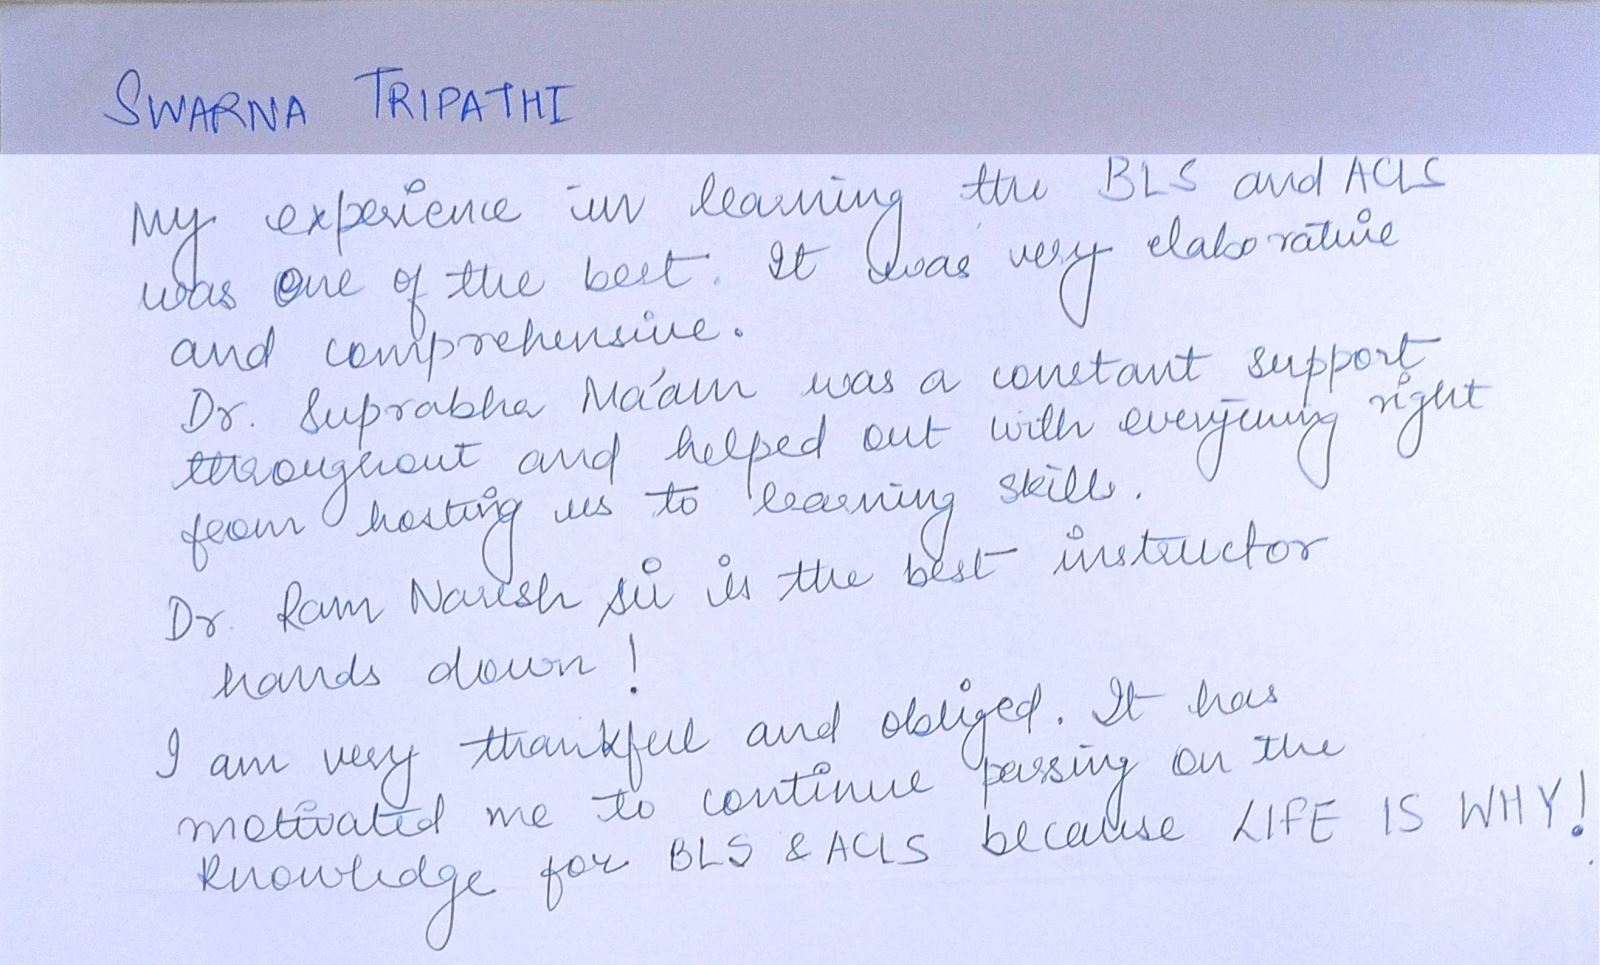 SWARNA TRIPATHI
My experience in learning the BLS and ACLS
was one of the best. It was very elaborative
and comprehensive.
Dr. Suprabha Ma'am was a constant support
throughout and helped out with everything right
from hosting us to learning skills.
Dr. Ram Naresh sir is the best instructor
hands down!
I am very thankful and obliged. It has
motivated me to continue passing on the
knowledge for BLS & ACLS because LIFE IS WHY!